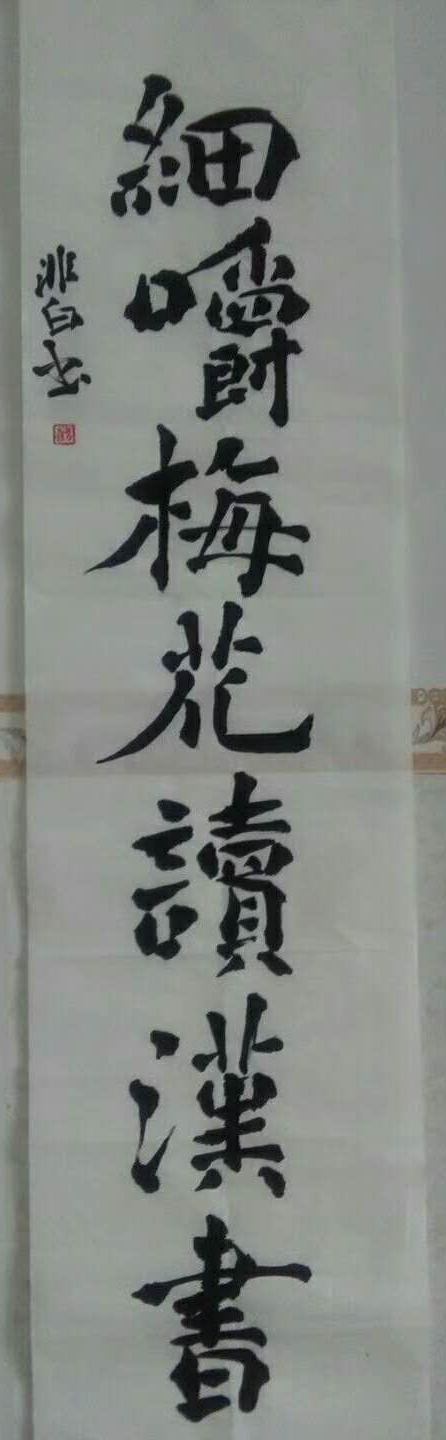 細嚼梅花讀漢書
非白书